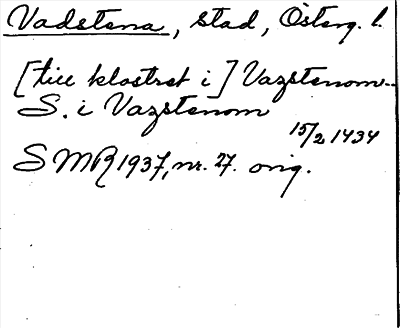 Vadstena, stad, Österg. l.
[till klostret i] Vazstenom..
S. i Vazstenom
15/2 1434
SMR 1937, nr. 27. orig.